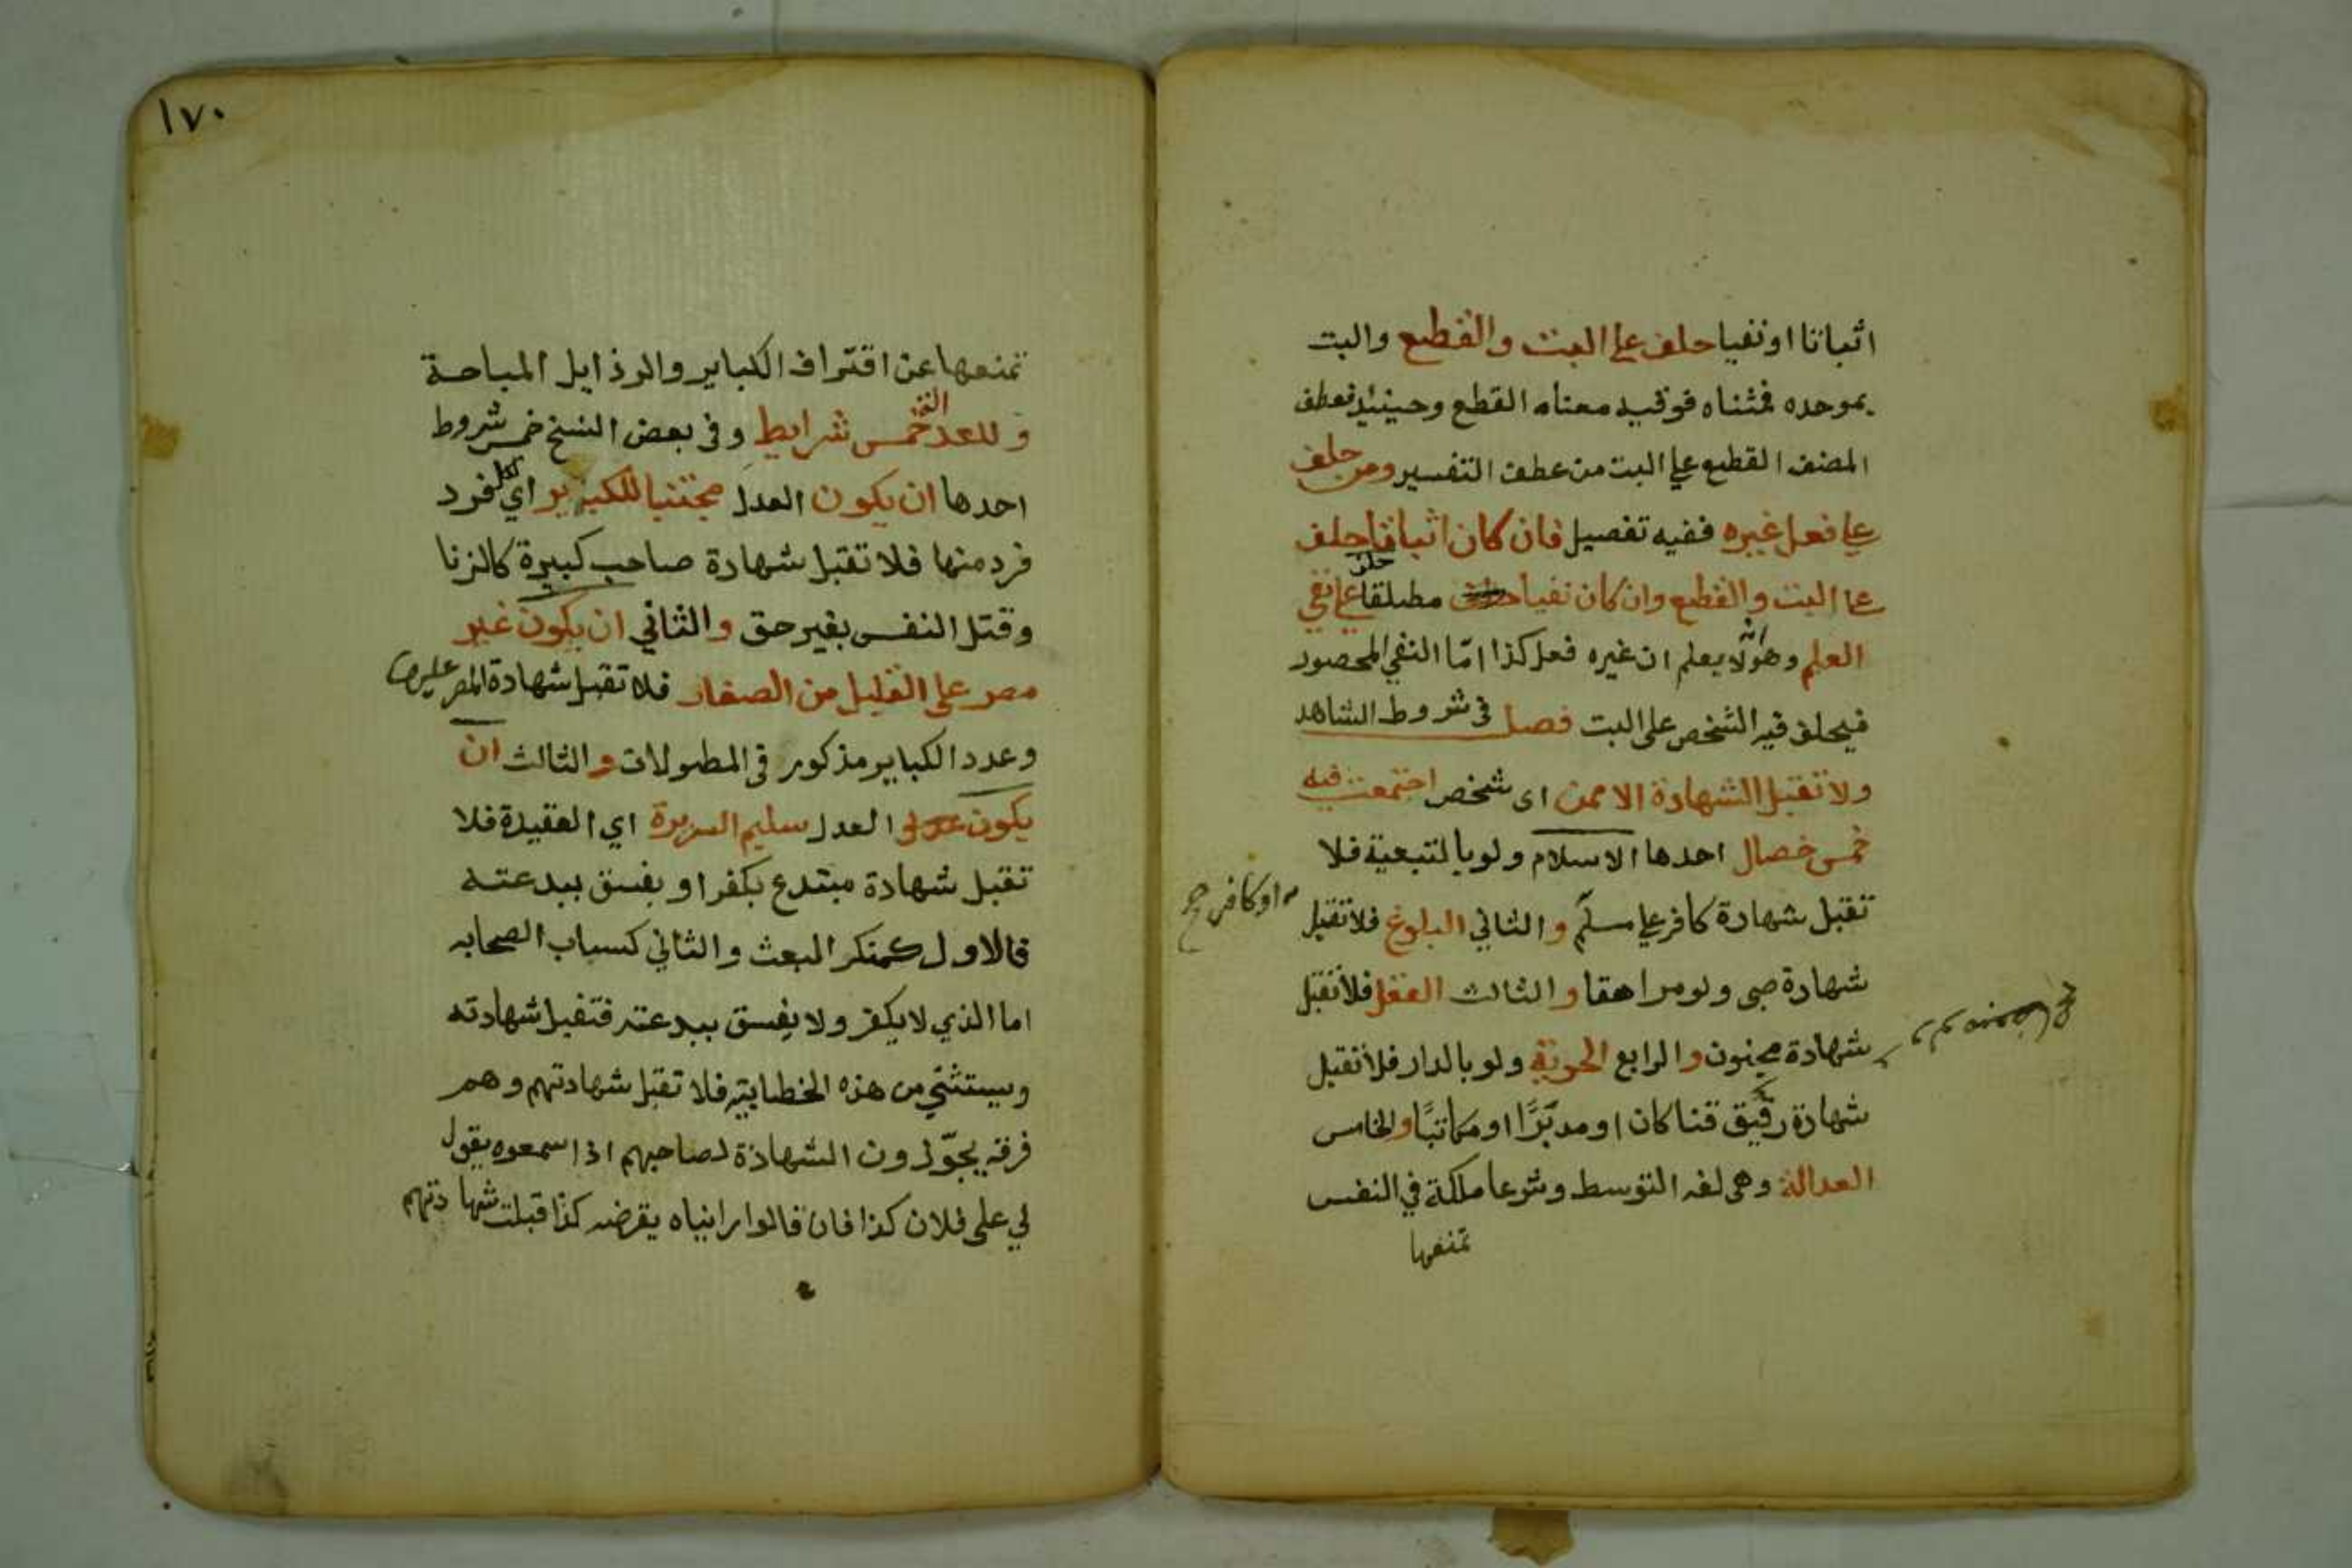 اثباتا او نفيا حلف على البت والقطع والبت
بموحده فمثناه فوقيه معناه القطع وحينئذ فعطف
المصنف القطع على البت من عطف التفسير ومن حلف
على فعل غيره ففيه تفصيل فان كان اثباتا حلف
على البت والقطع وان كان نفيا مطلقا حلف على نفي
العلم وهو انه لا يعلم ان غيره فعل كذا امّا النفي المحصور
فيحلف فيه الشخص على البت فصل في شروط الشاهد
ولا تقبل الشهادة الا ممن اى شخص اجتمعت فيه
خمس خصال احدها الاسلام ولو بالتبعية فلا
تقبل شهادة كافر على مسلم والثاني البلوغ فلا تقبل
او كافر صح
شهادة صبى ولو مراهقا والثالث العقل فلا تقبل
شهادة مجنون والرابع الحرية ولو بالدار فلا تقبل
شهادة رقيق قنا كان او مدبَّرًا او مكاتبًا والخامس
العدالة وهى لغه التوسط وشرعا ملكة في النفس
تمنعها
١٧٠
تمنعها عن اقتراف الكباير والرذايل المباحة
وللعدالة خمس شرايط وفى بعض النسخ خمس شروط
احدها ان يكون العدل مجتنبا للكباير اي لكل فرد
فرد منها فلا تقبل شهادة صاحب كبيرة كالزنا
وقتل النفس بغير حق والثاني ان يكون غير
مصر على القليل من الصغاير فلا تقبل شهادة المصر عليها
وعدد الكباير مذكور في المطولات والثالث ان
يكون العدل سليم السريرة اي العقيدة فلا
تقبل شهادة مبتدع يكفر او يفسق ببدعته
فالاول كمنكر البعث والثاني كسباب الصحابه
اما الذي لا يكفر ولا يفسق ببدعته فتقبل شهادته
ويستثني من هذه الخطابيه فلا تقبل شهادتهم وهم
فرقه يجوّزون الشهادة لصاحبهم اذا سمعوه يقول
لي على فلان كذا فان قالوا رايناه يقرضه كذا قبلت شهادتهم